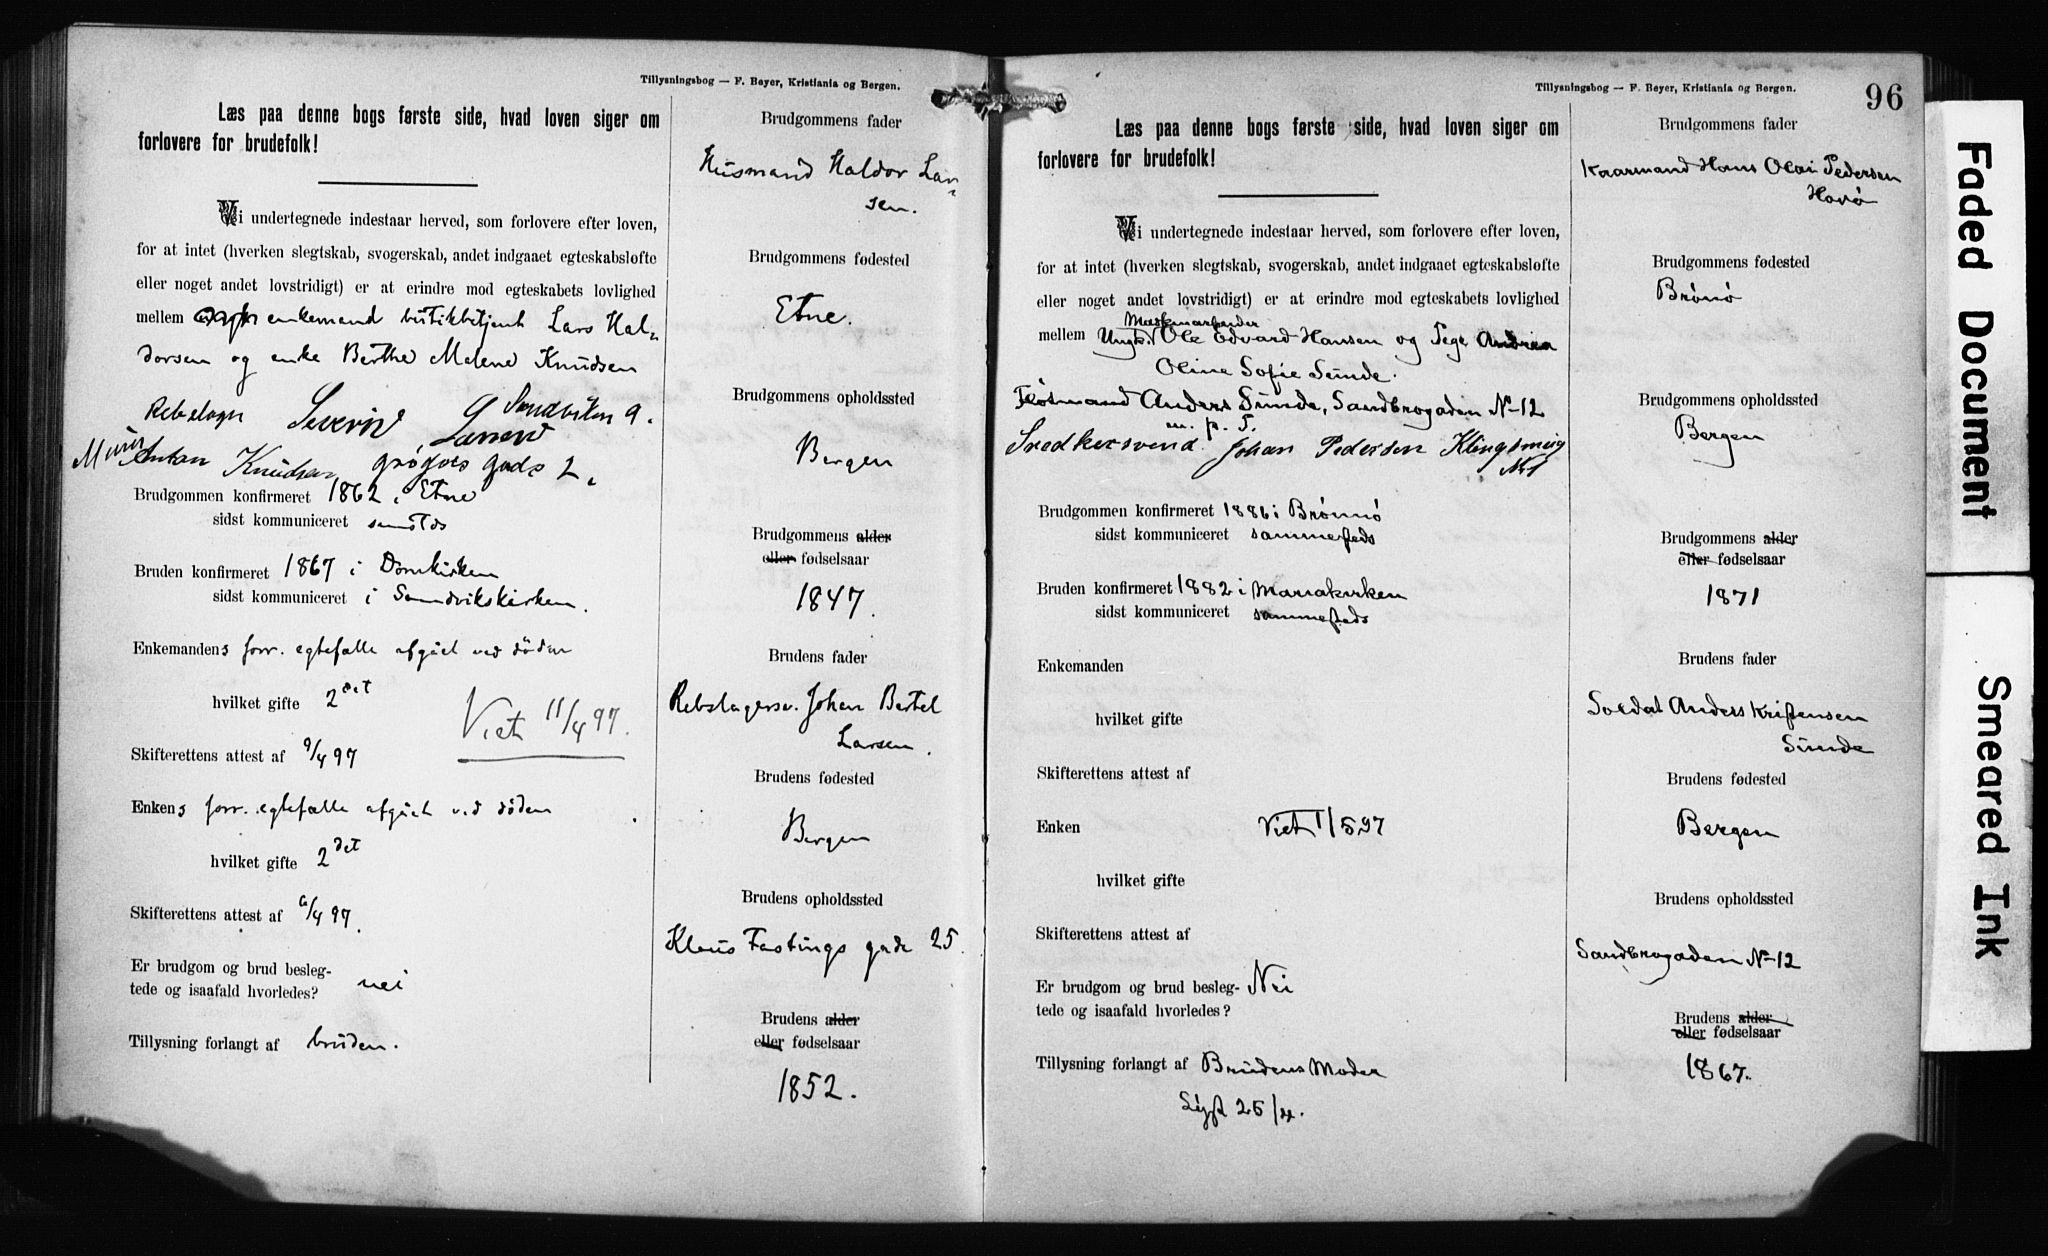 Tillysningsbog — F. Beyer, Kristiania og Bergen.
Læs paa denne bogs første side, hvad loven siger om
forlovere for brudefolk!
Vi undertegnede indestaar herved, som forlovere efter loven,
for at intet (hverken slegtskab, svogerskab, andet indgaaet egteskabsløfte
eller noget andet lovstridigt) er at erindre mod egteskabets lovlighed
mellem enkemand butikbetjent Lars Hal-
dorsen og enke Berthe Malene Knudsen
Rebslager Severin Larsen Sandviken 9.
Murer Anton Knudsen, gade 2.
Brudgommen konfirmeret 1862 i Etne
sidst kommuniceret samstds
Bruden konfirmeret 1867 i Domkirken
sidst kommuniceret i Sandvikskirken.
Enkemandens forr. egtefælle afgået ved døden
hvilket gifte 2det
Viet 11/4 97.
Skifterettens attest af 9/4 97
Enkens forr. egtefælle afgået ved døden
hvilket gifte 2det
Skifterettens attest af 6/4 97.
Er brudgom og brud besleg-
tede og isaafald hvorledes? nei
Tillysning forlangt af bruden.
Brudgommens fader
Husmand Haldor Lar-
sen.
Brudgommens fødested
Etne.
Brudgommens opholdssted
Bergen
Brudgommens alder
eller fødselsaar
1847.
Brudens fader
Rebslagersv. Johan Bertel
Larsen.
Brudens fødested
Bergen
Brudens opholdssted
Klaus Fastings gade 25.
Brudens alder
eller fødselsaar
1852.
Tillysningsbog — F. Beyer, Kristiania og Bergen.
96
Læs paa denne bogs første side, hvad loven siger om
forlovere for brudefolk!
Vi undertegnede indestaar herved, som forlovere efter loven,
for at intet (hverken slegtskab, svogerskab, andet indgaaet egteskabsløfte
eller noget andet lovstridigt) er at erindre mod egteskabets lovlighed
Maskinarbeider
mellem Ungk. Ole Edvard Hansen og Pige Andrea
Oline Sofie Sunde.
Fløtmand Anders Sunde, Sandbrogaden No 12
m. p. P.
Snedkersvend Johan Pedersen Klingsmug
No 1
Brudgommen konfirmeret 1886 i Brønnø
sidst kommuniceret sammesteds
Bruden konfirmeret 1882 i Mariakirken
sidst kommuniceret sammesteds
Enkemanden
hvilket gifte
Skifterettens attest af
Enken
Viet 1/5 97
hvilket gifte
Skifterettens attest af
Er brudgom og brud besleg-
tede og isaafald hvorledes? Nei
Tillysning forlangt af Brudens Moder
Lyst 25/4.
Brudgommens fader
Kaarmand Hans Olai Pedersen
Havø
Brudgommens fødested
Brønø
Brudgommens opholdssted
Bergen
Brudgommens alder
eller fødselsaar
1871
Brudens fader
Soldat Anders Kristensen
Sunde
Brudens fødested
Bergen
Brudens opholdssted
Sandbrogaden No 12
Brudens alder
eller fødselsaar
1867.
Faded Document
Smeared Ink